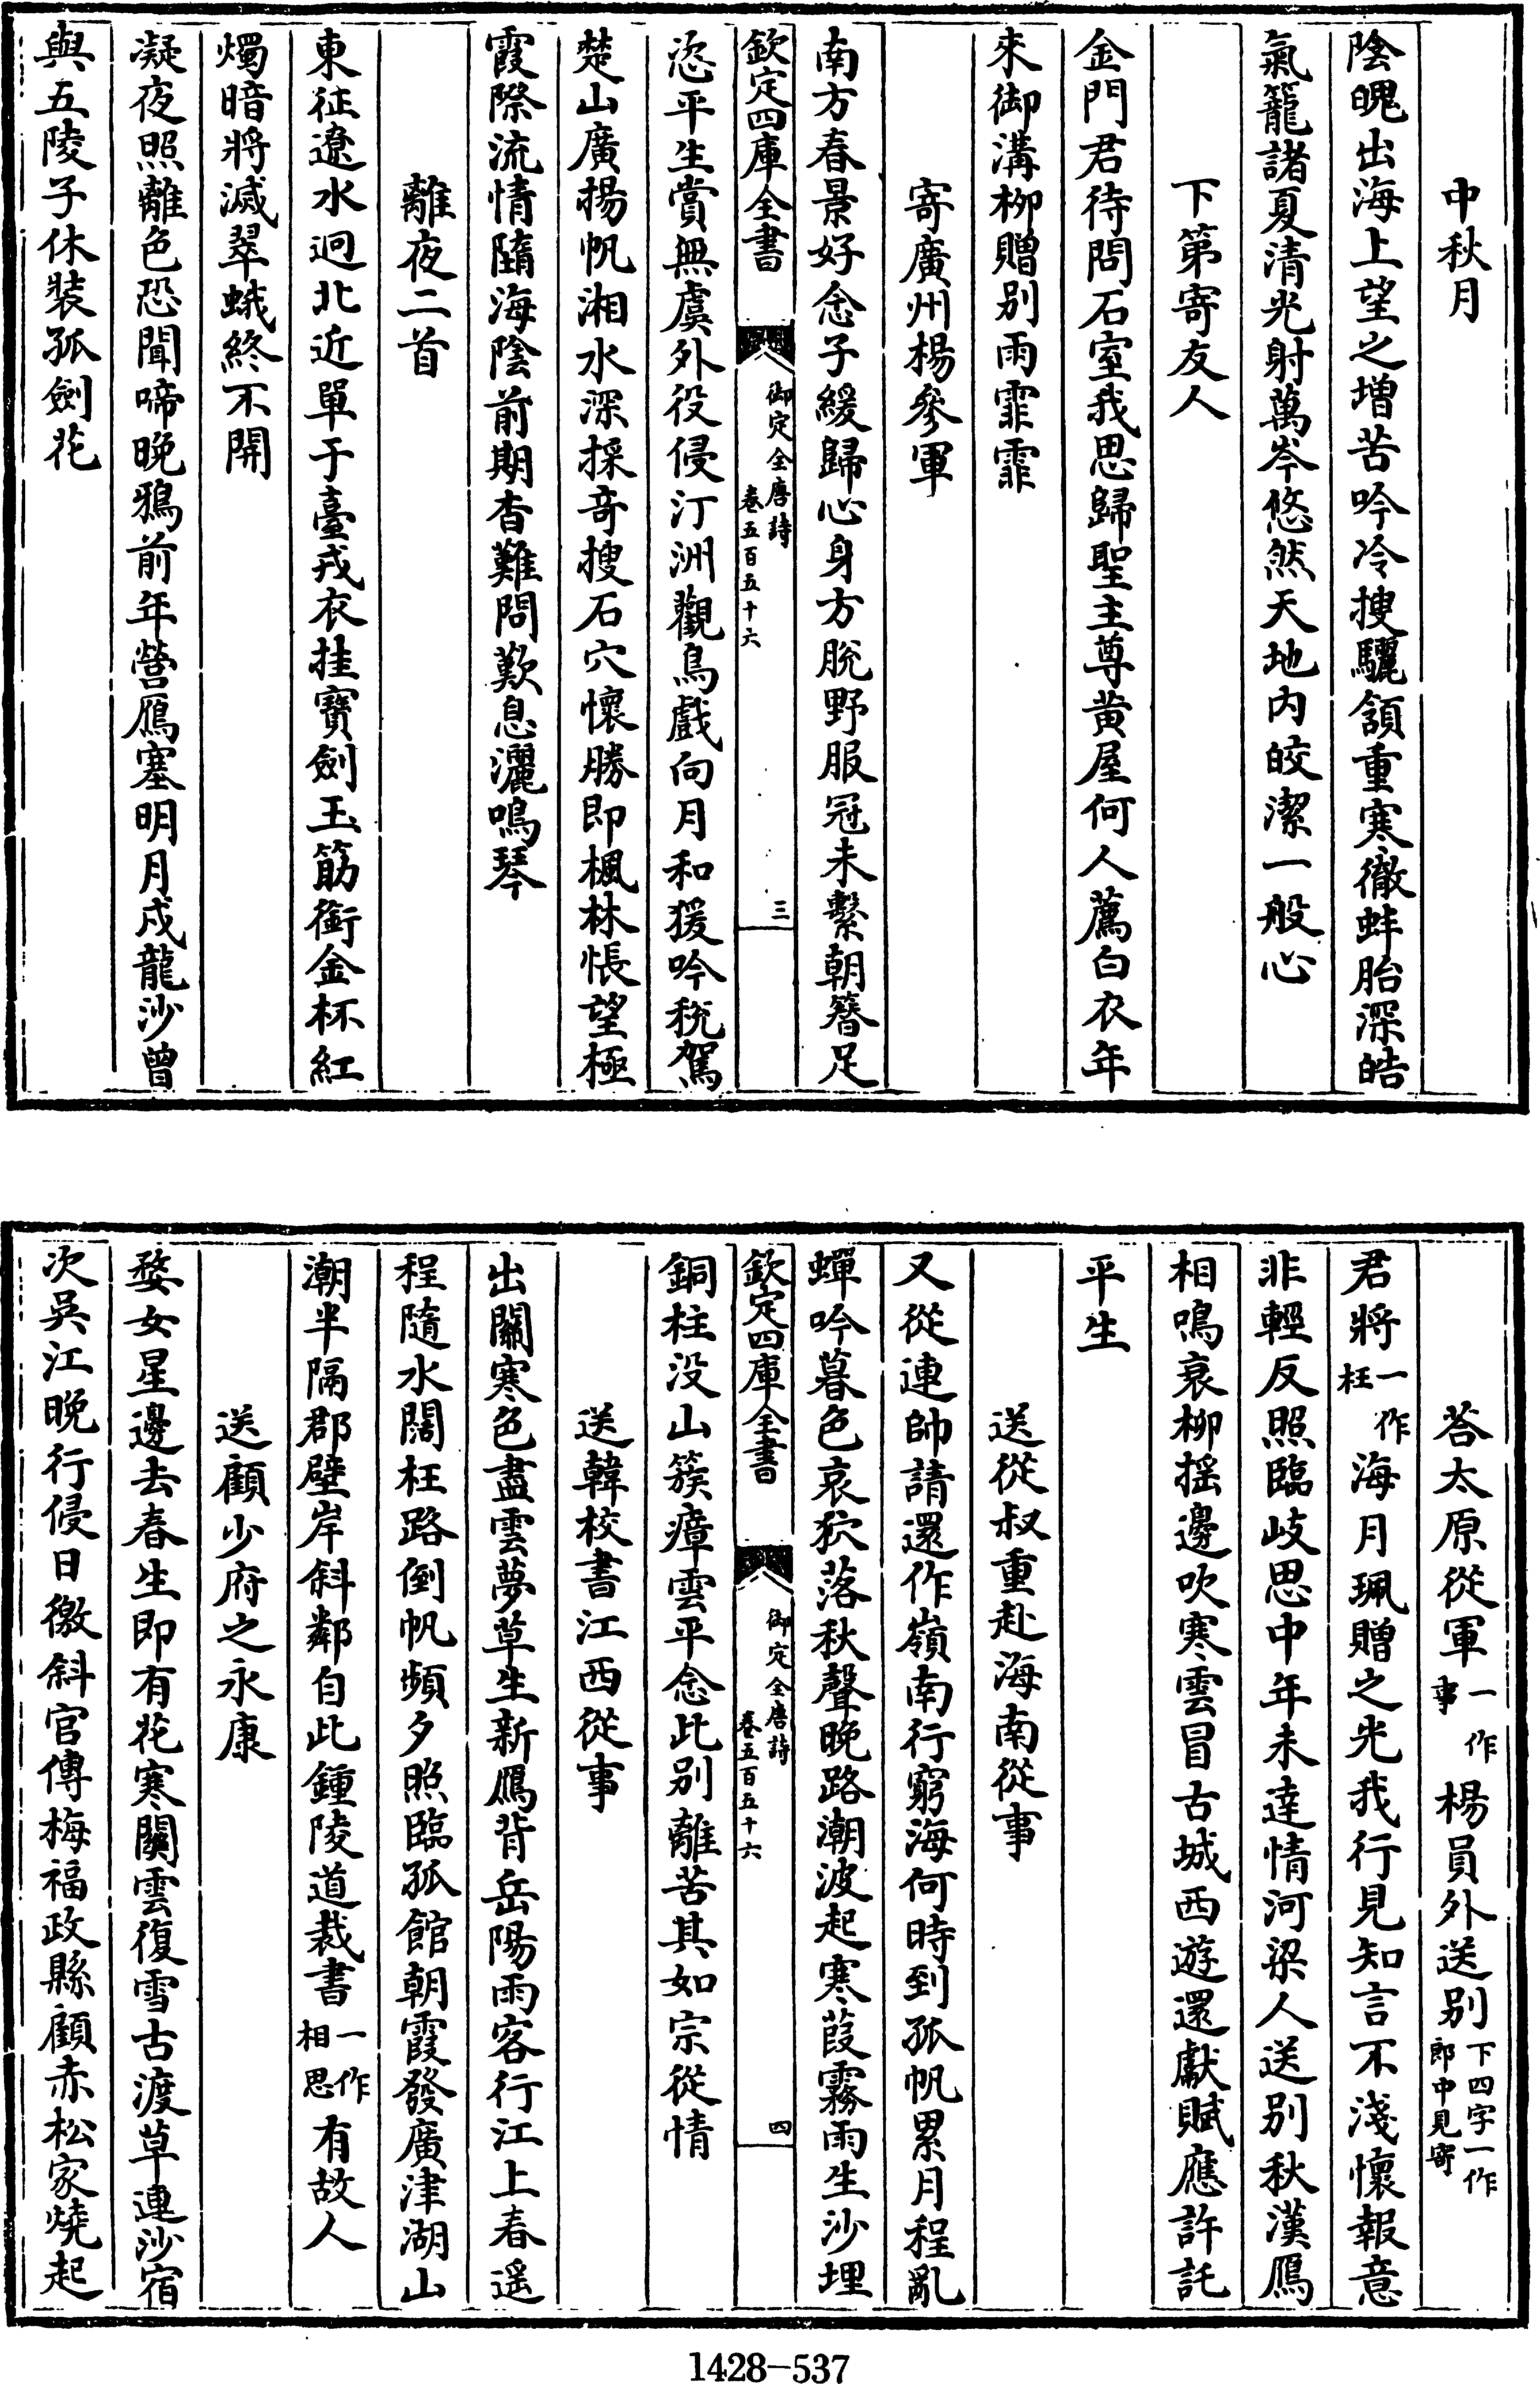 中秋月
陰魄出海上望之增苦吟冷搜驪頷重寒徹蚌胎深皓
氣籠諸夏清光射萬岑悠然天地内皎潔一般心
下第寄友人
金門君待問石室我思歸聖主尊黄屋何人薦白衣年
來御溝柳贈别雨霏霏
寄廣州楊參軍
南方春景好念子緩歸心身方脱野服冠未繫朝簪足
欽定四庫全書
御定全唐詩
卷五百五十六
三
恣平生賞無虞外役侵汀洲觀鳥戲向月和猨吟稅駕
楚山廣揚帆湘水深採奇搜石穴懷勝即楓林悵望極
霞際流情隨海陰前期杳難問歎息灑鳴琴
離夜二首
東征遼水迥北近單于臺戎衣挂寳劍玉筯銜金杯紅
燭暗將滅翠蛾終不開
凝夜照離色恐聞啼晚鴉前年營鴈塞明月戍龍沙曾
與五陵子休裝孤劍花
荅太原從軍一作事楊員外送别下四字一作郎中見寄
君將一作枉海月珮贈之光我行見知言不淺懷報意
非輕反照臨岐思中年未達情河梁人送别秋漢鴈
相鳴衰柳揺邊吹寒雲冒古城西遊還獻賦應許託
平生
送從叔重赴海南從事
又從連帥請還作嶺南行窮海何時到孤帆累月程亂
蟬吟暮色哀狖落秋聲晚路潮波起寒葭霧雨生沙埋
欽定四庫全書
御定全唐詩
卷五百五十六
四
銅柱没山簇瘴雲平念此别離苦其如宗從情
送韓校書江西從事
出關寒色盡雲夢草生新鴈背岳陽雨客行江上春遥
程隨水闊枉路倒帆頻夕照臨孤館朝霞發廣津湖山
潮半隔郡壁岸斜鄰自此鍾陵道裁書一作相思有故人
送顧少府之永康
婺女星邊去春生即有花寒關雲復雪古渡草連沙宿
次吳江晚行侵日徼斜官傳梅福政縣顧赤松家燒起
1428-537